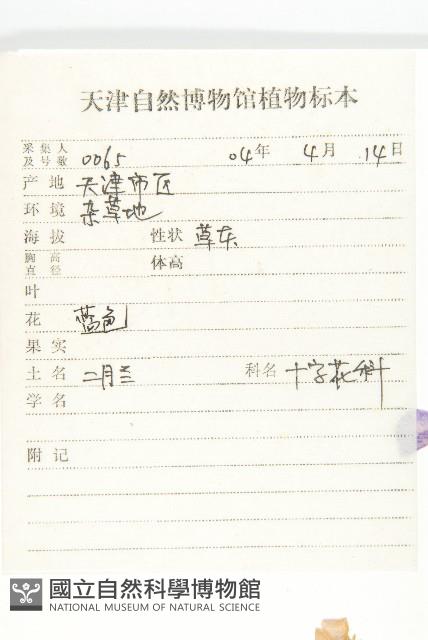 天津自然博物馆植物标本
采集人及号数 0065 04年 4月 14日
产地 天津市区
环境 杂草地
海拔 性状 草本
胸高直径 体高
叶
花 蓝色
果实
土名 二月兰 科名 十字花科
学名
附记
國立自然科學博物館
NATIONAL MUSEUM OF NATURAL SCIENCE